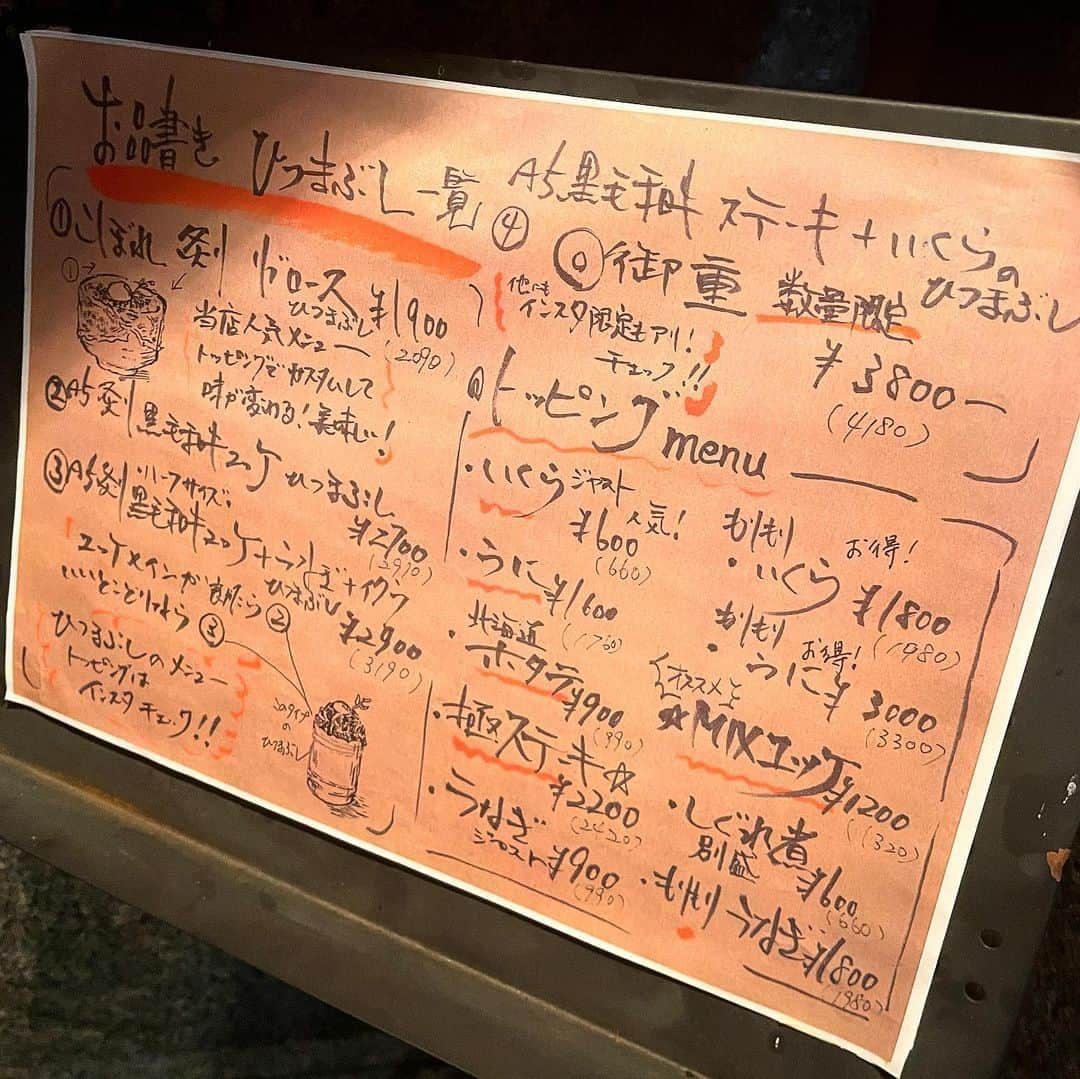 お品書き ひつまぶし一覧
①こぼれ 炙り リブロース
ひつまぶし ¥1900
(2090)
当店人気メニュー
トッピングでカスタムして
味が変わる！美味しい！
②A5炙り黒毛和牛ユッケ ひつまぶし
¥2700
(2970)
③A5炙り ハーフサイズ
黒毛和牛ユッケ+うなぎ+イクラ
ひつまぶし ¥2900
(3190)
ユッケメインが良かったら②
いいとこどりなら③
ひつまぶしのメニュー
トッピングは
インスタ チェック!!
このタイプ
の
ひつまぶし
④ A5黒毛和牛 ステーキ+いくらの
ひつまぶし
御重 数量限定
¥3800ー
(4180)
他にも
インスタ限定もアリ！
チェック!!
トッピング menu
・いくら ジャスト
¥600 人気！
(660)
・うに ¥1600
(1760)
北海道
・ホタテ ¥900
(990)
・極ステーキ☆
¥2200
(2420)
・うなぎ
ジャスト ¥900
(990)
もりもり お得！
・いくら ¥1800
(1980)
もりもり お得！
・うに ¥3000
(3300)
オススメ
☆MIXユッケ ¥1200
(1320)
・しぐれ煮
別盛 ¥600
(660)
・もりもり うなぎ ¥1800
(1980)